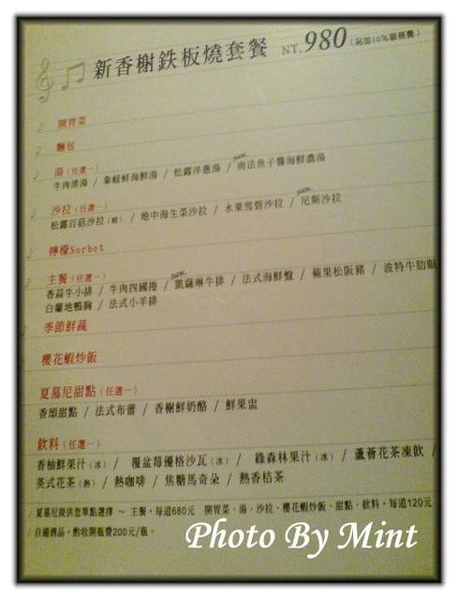 新香榭鉄板燒套餐 NT.980 (另加10%服務費)
開胃菜
麵包
湯(任選一)
牛肉清湯 / 象蚌鮮海鮮湯 / 松露洋蔥湯 / 南法魚子醬海鮮濃湯
沙拉(任選一)
松露百菇沙拉(酸) / 地中海生菜沙拉 / 水果雪碧沙拉 / 尼斯沙拉
檸檬Sorbet
主餐(任選一)
香蒜牛小排 / 牛肉四國捲 / 凱薩琳牛排 / 法式海鮮盤 / 蘋果松阪豬 / 波特牛肋眼
白蘭地鴨胸 / 法式小羊排
季節鮮蔬
櫻花蝦炒飯
夏慕尼甜點(任選一)
香頌甜點 / 法式布蕾 / 香榭鮮奶酪 / 鮮果盅
飲料(任選一)
香柚鮮果汁(冰) / 覆盆莓優格沙瓦(冰) / 綠森林果汁(冰) / 蘆薈花茶凍飲 /
英式花茶(熱) / 熱咖啡 / 焦糖馬奇朵 / 熱香桔茶
夏慕尼提供您單點選擇 ~ 主餐,每道680元 開胃菜、湯、沙拉、櫻花蝦炒飯、甜點、飲料,每道120元
自備酒品,酌收開瓶費200元/瓶。
Photo By Mint